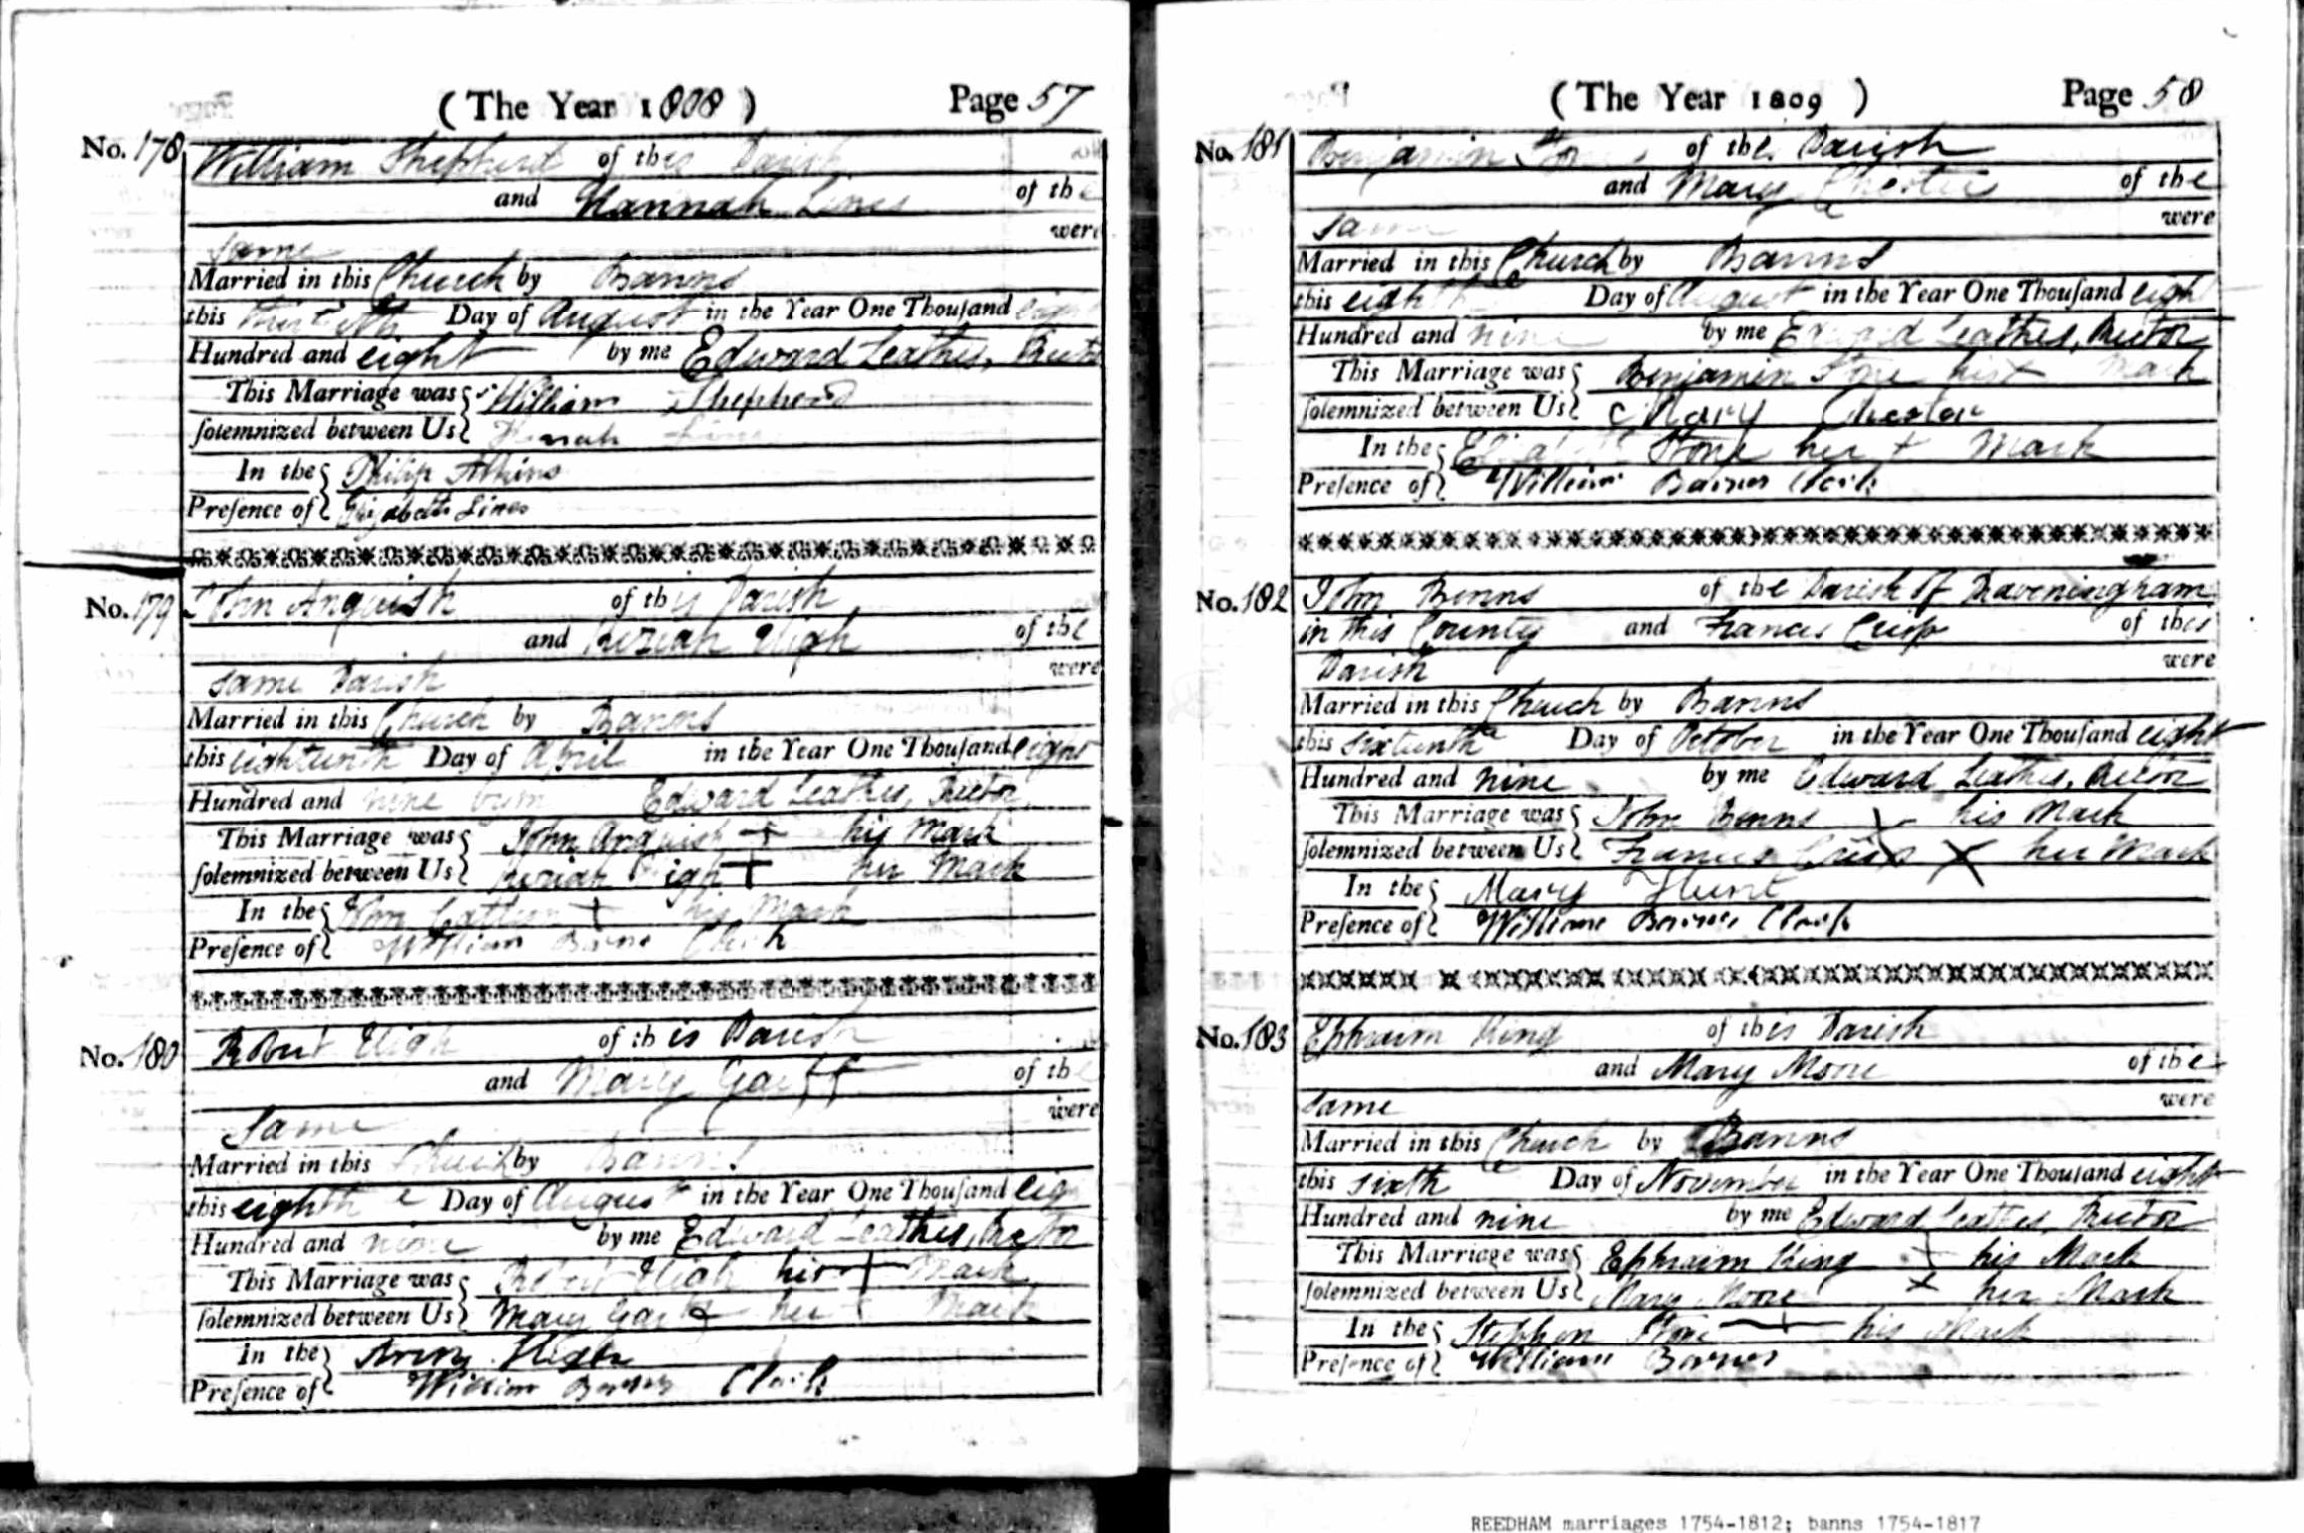 (The Year 1808) Page 57
No. 178 William Shepherd of this Parish
and Hannah Lines of the
same were
Married in this Church by Banns
this Day of August in the Year One Thouſand eight
Hundred and eight by me Edward Leathes, Rector
This Marriage was William Shepherd
ſolemnized between Us
In the Philip Atkins
Preſence of Elizabeth Lines
No. 179 John Anguish of this Parish
and Keziah High of the
same Parish were
Married in this Church by Banns
this eighteenth Day of April in the Year One Thouſand eight
Hundred and nine by me Edward Leathes, Rector
This Marriage was John Anguish + his Mark
ſolemnized between Us Keziah High + her Mark
In the John + his Mark
Preſence of William Barnes Clerk
No. 180 Robert High of this Parish
and Mary of the
Same were
Married in this Church by Banns
this eighth Day of August in the Year One Thouſand eigh
Hundred and nine by me Edward Leathes, Rector
This Marriage was Robert High his + Mark
ſolemnized between Us Mary her + Mark
In the High
Preſence of William Barnes Clerk
(The Year 1809) Page 58
No. 181 Benjamin Stone of the Parish
and Mary Chester of the
same were
Married in this Church by Banns
this eighth Day of August in the Year One Thouſand eight
Hundred and nine by me Edward Leathes, Rector
This Marriage was Benjamin Stone his + Mark
ſolemnized between Us Mary Chester
In the Stone her + Mark
Preſence of William Barnes Clerk
No. 182 John Benns of the Parish of Raveningham
in this County and Frances Crisp of this
Parish were
Married in this Church by Banns
this sixteenth Day of October in the Year One Thouſand eight
Hundred and nine by me Edward Leathes, Rector
This Marriage was John Benns X his Mark
ſolemnized between Us Frances Crisp X her Mark
In the Mary Hunt
Preſence of William Barnes Clerk
No. 183 Ephraim King of this Parish
and Mary Moore of the
same were
Married in this Church by Banns
this sixth Day of November in the Year One Thouſand eight
Hundred and nine by me Edward Leathes, Rector
This Marriage was Ephraim King + his Mark
ſolemnized between Us Mary Moore x her Mark
In the Stephen Stone + his Mark
Preſence of William Barnes
REEDHAM marriages 1754-1812; banns 1754-1817